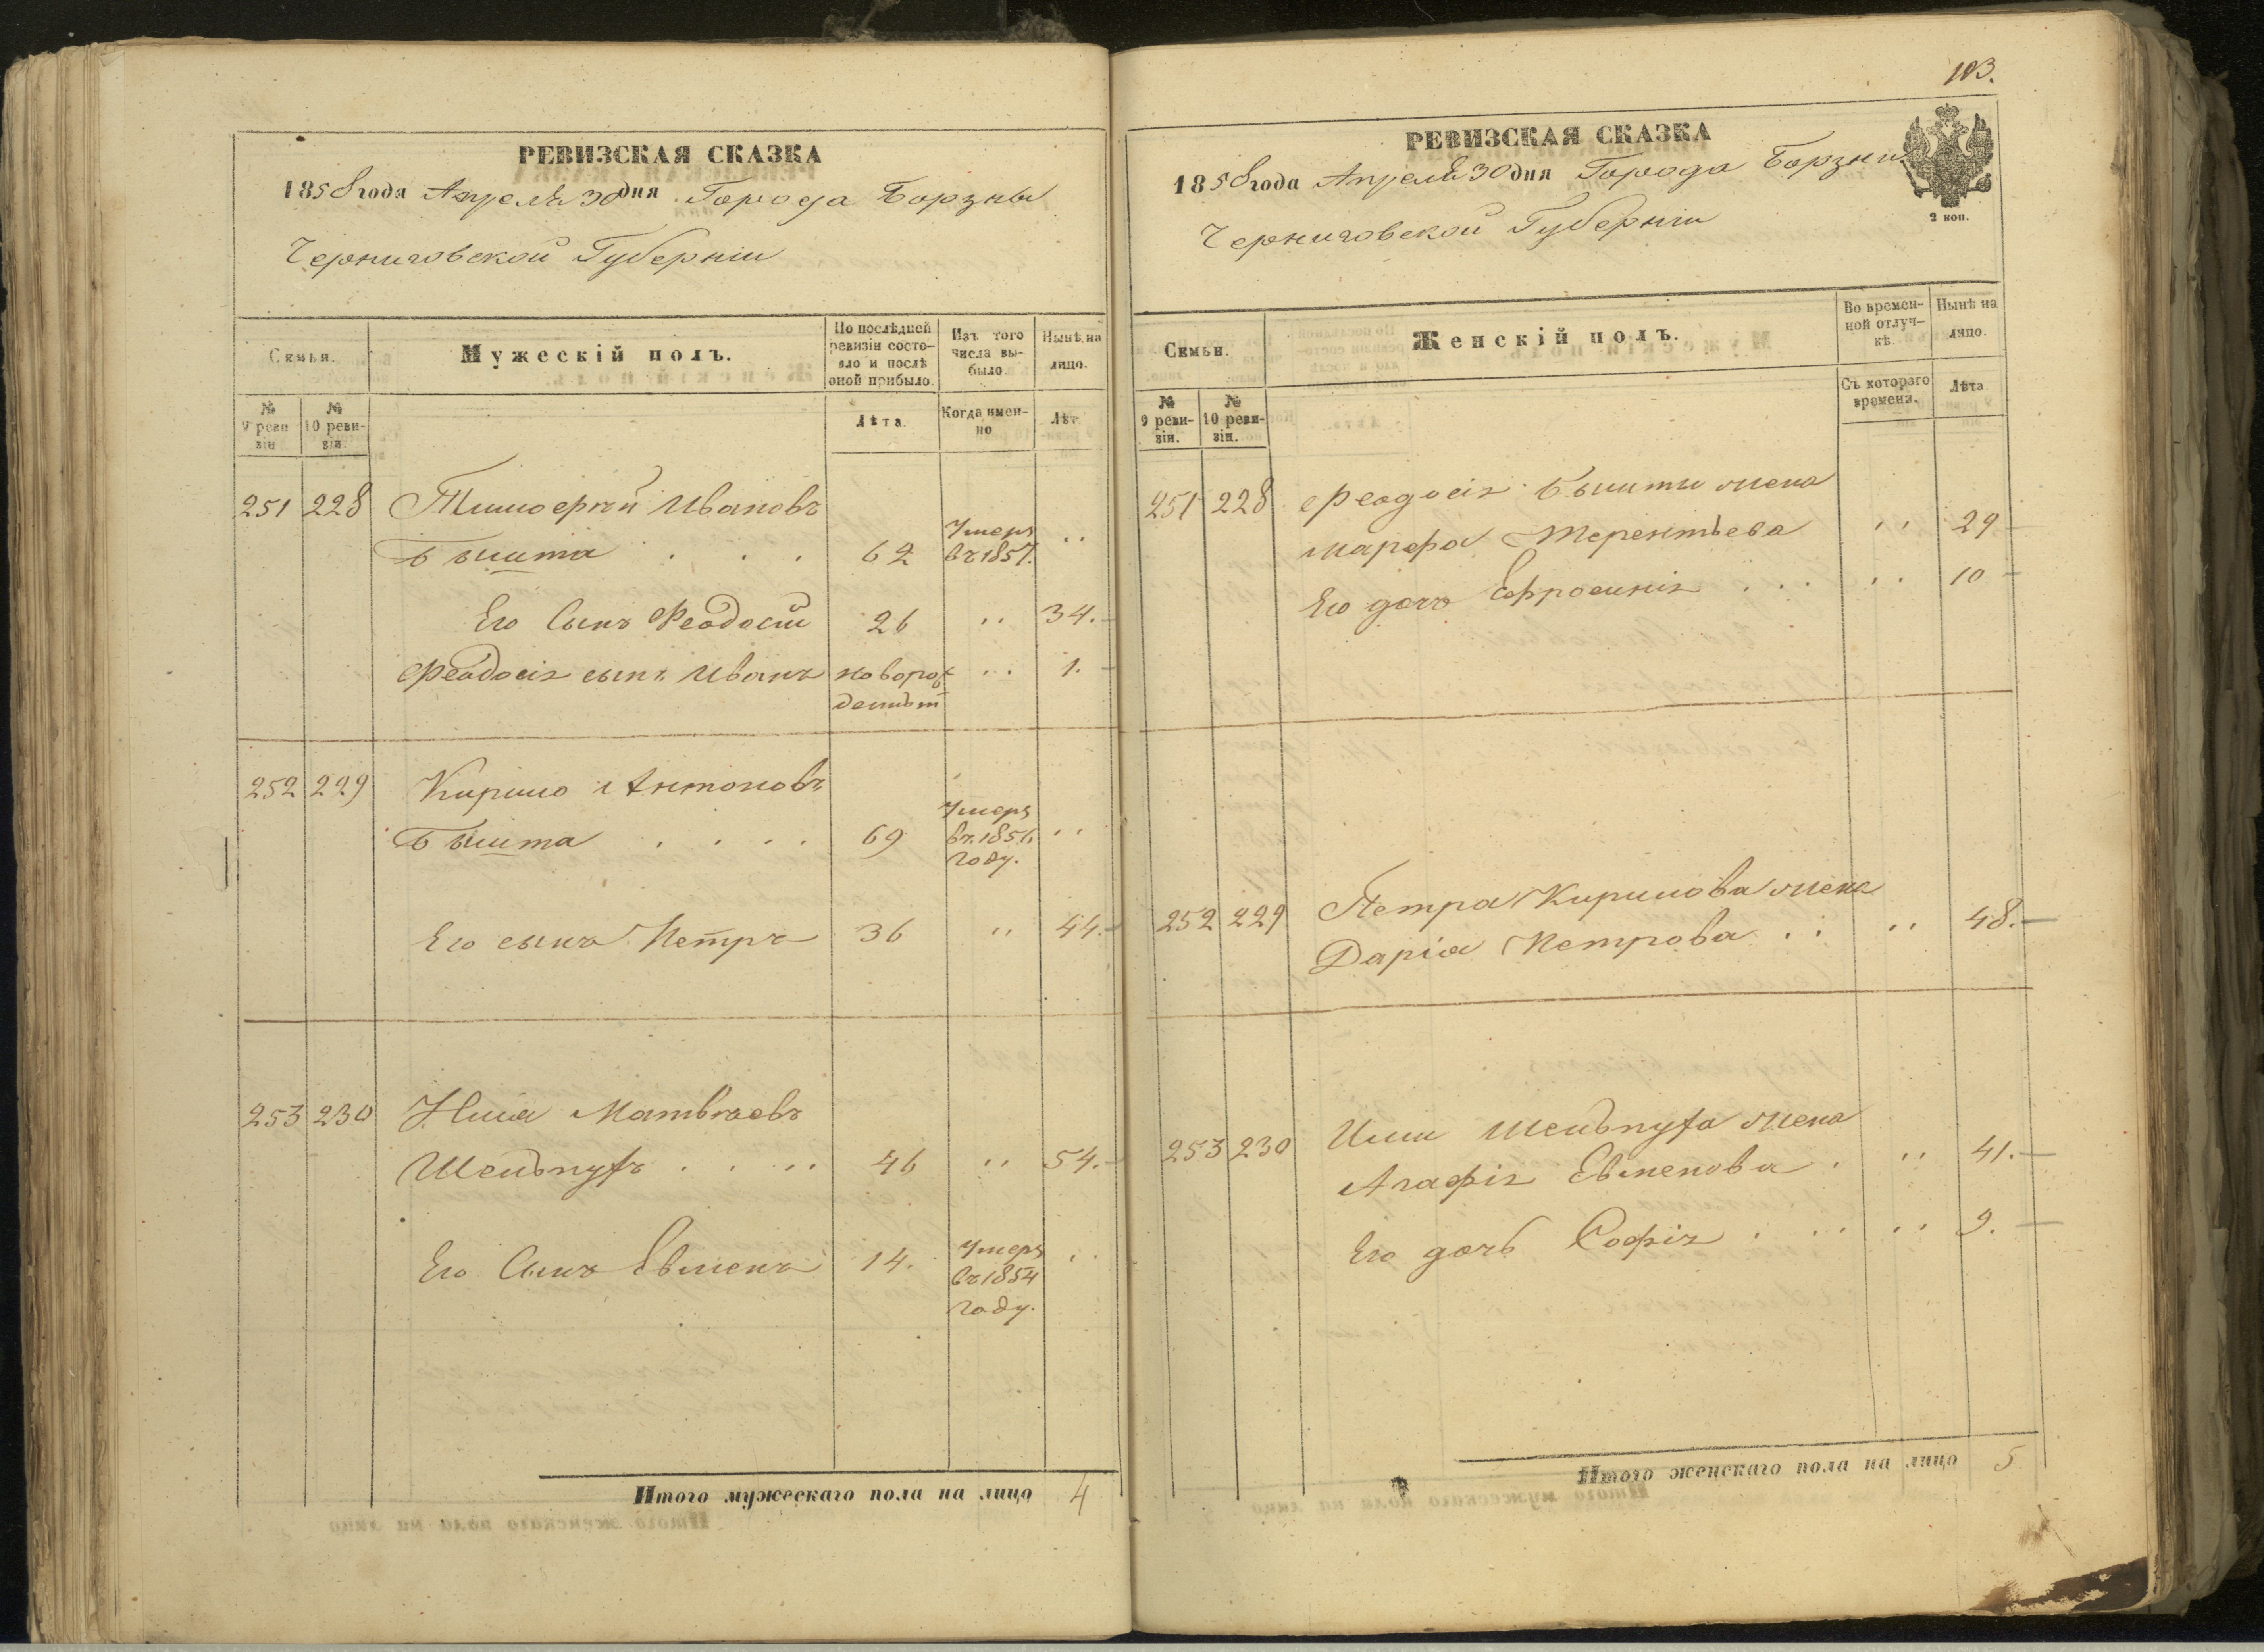 РЕВИЗСКАЯ СКАЗКА
1858 года Апреля 30 дня Города Борзны
Черниговской Губерніи
Семьи.
Мужескій полъ.
По послѣдней ревизіи состояло и послѣ оной прибыло.
Изъ того числа выбыло.
Нынѣ на лицо.
№ 9 ревизіи
№ 10 ревизіи.
Лѣта.
Когда именно
Лѣт
251 228 Тимофей Ивановъ
Бышта . . . 62 Умеръ въ 1857. ..
Его Сынъ Феодосій 26 " 34.
Феодосія сынъ Иванъ новорожденный .. 1.
252 229 Кирило Антоновъ
Бышта . . . . 69 Умеръ въ 1856 году. ..
Его сынъ Петръ 36 " 44.
253 230 Илія Матвѣевъ
Шельпухъ . . .. 46 " 54.
Его Сынъ Евменъ 14. Умеръ въ 1854 году. ..
Итого мужескаго пола на лицо 4
103.
РЕВИЗСКАЯ СКАЗКА
1858 года Апреля 30 дня Города Борзны
2 коп.
Черниговской Губерніи
Семьи.
Женскій полъ.
Во временной отлучкѣ.
Нынѣ на лицо.
№ 9 ревизіи.
№ 10 ревизіи.
Съ котораго времени.
Лѣта
251 228 Феодосія Бышты жена
Марфа Терентьева " 29
Его дочь Ефросинія . . . .. 10
252 229 Петра Кирилова жена
Дарія Петрова .. .. 48.
253 230 Иліи Шельпуха жена
Агафія Евменова . .. 41.
Его дочь Софія . .. .. 9.
Итого женскаго пола на лицо 5